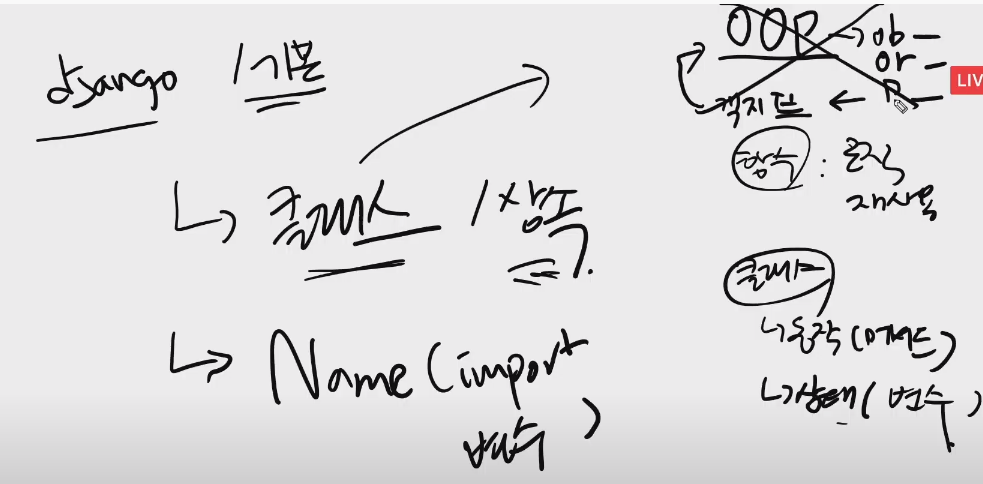 django / 기본
클래스 / 상속
Name (import
변수 )
OOP → ob —
or —
P —
객지프 ←
함수 : 로직
재사용
클래스
↳ 동작 (메서드)
↳ 상태 ( 변수 )
LIV